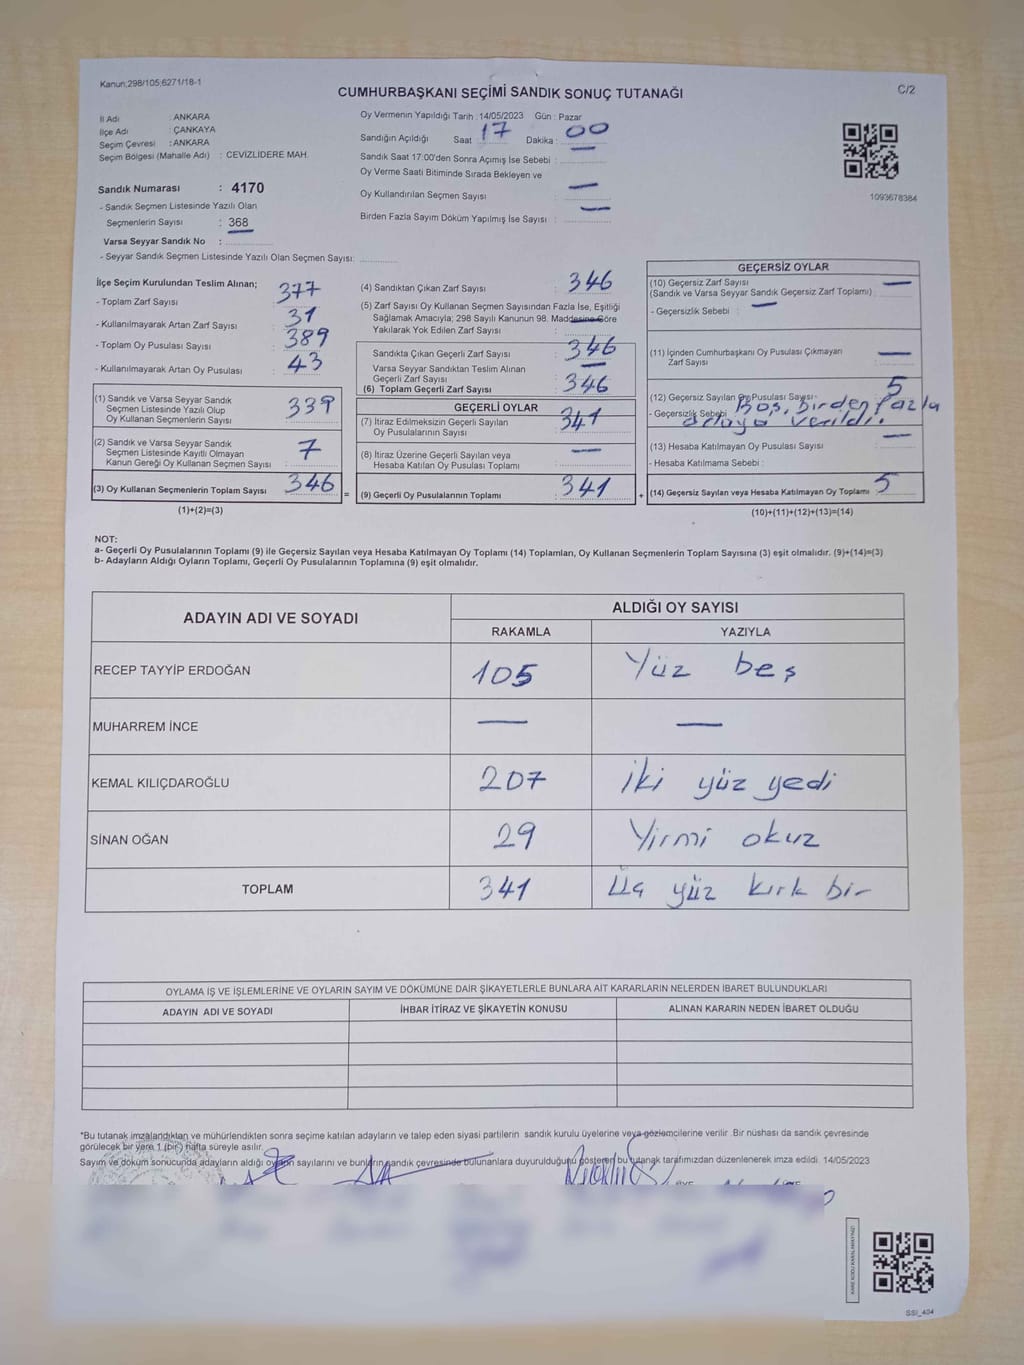 Kanun:298/105;6271/18-1
CUMHURBAŞKANI SEÇİMİ SANDIK SONUÇ TUTANAĞI
C/2
İl Adı : ANKARA
İlçe Adı : ÇANKAYA
Seçim Çevresi : ANKARA
Seçim Bölgesi (Mahalle Adı) : CEVİZLİDERE MAH.
Sandık Numarası : 4170
- Sandık Seçmen Listesinde Yazılı Olan
Seçmenlerin Sayısı : 368
Varsa Seyyar Sandık No :
- Seyyar Sandık Seçmen Listesinde Yazılı Olan Seçmen Sayısı:
Oy Vermenin Yapıldığı Tarih : 14/05/2023 Gün : Pazar
Sandığın Açıldığı Saat : 17 Dakika : 00
Sandık Saat 17:00'den Sonra Açımış İse Sebebi :
Oy Verme Saati Bitiminde Sırada Bekleyen ve
Oy Kullandırılan Seçmen Sayısı : —
Birden Fazla Sayım Döküm Yapılmış İse Sayısı : —
1093678384
İlçe Seçim Kurulundan Teslim Alınan;
- Toplam Zarf Sayısı : 377
- Kullanılmayarak Artan Zarf Sayısı : 31
- Toplam Oy Pusulası Sayısı : 389
- Kullanılmayarak Artan Oy Pusulası : 43
(1) Sandık ve Varsa Seyyar Sandık
Seçmen Listesinde Yazılı Olup
Oy Kullanan Seçmenlerin Sayısı : 339
(2) Sandık ve Varsa Seyyar Sandık
Seçmen Listesinde Kayıtlı Olmayan
Kanun Gereği Oy Kullanan Seçmen Sayısı : 7
(3) Oy Kullanan Seçmenlerin Toplam Sayısı : 346
(1)+(2)=(3)
(4) Sandıktan Çıkan Zarf Sayısı : 346
(5) Zarf Sayısı Oy Kullanan Seçmen Sayısından Fazla İse, Eşitliği
Sağlamak Amacıyla; 298 Sayılı Kanunun 98. Maddesine Göre
Yakılarak Yok Edilen Zarf Sayısı : —
Sandıkta Çıkan Geçerli Zarf Sayısı : 346
Varsa Seyyar Sandıktan Teslim Alınan
Geçerli Zarf Sayısı : —
(6) Toplam Geçerli Zarf Sayısı : 346
GEÇERLİ OYLAR
(7) İtiraz Edilmeksizin Geçerli Sayılan
Oy Pusulalarının Sayısı : 341
(8) İtiraz Üzerine Geçerli Sayılan veya
Hesaba Katılan Oy Pusulası Toplamı : —
= (9) Geçerli Oy Pusulalarının Toplamı : 341
GEÇERSİZ OYLAR
(10) Geçersiz Zarf Sayısı
(Sandık ve Varsa Seyyar Sandık Geçersiz Zarf Toplamı) : —
- Geçersizlik Sebebi : —
(11) İçinden Cumhurbaşkanı Oy Pusulası Çıkmayan
Zarf Sayısı : —
(12) Geçersiz Sayılan Oy Pusulası Sayısı : 5
- Geçersizlik Sebebi : Boş, birden fazla
adaya verildi.
(13) Hesaba Katılmayan Oy Pusulası Sayısı : —
- Hesaba Katılmama Sebebi :
+ (14) Geçersiz Sayılan veya Hesaba Katılmayan Oy Toplamı : 5
(10)+(11)+(12)+(13)=(14)
NOT:
a- Geçerli Oy Pusulalarının Toplamı (9) ile Geçersiz Sayılan veya Hesaba Katılmayan Oy Toplamı (14) Toplamları, Oy Kullanan Seçmenlerin Toplam Sayısına (3) eşit olmalıdır. (9)+(14)=(3)
b- Adayların Aldığı Oyların Toplamı, Geçerli Oy Pusulalarının Toplamına (9) eşit olmalıdır.
ADAYIN ADI VE SOYADI
ALDIĞI OY SAYISI
RAKAMLA YAZIYLA
RECEP TAYYİP ERDOĞAN 105 Yüz beş
MUHARREM İNCE — —
KEMAL KILIÇDAROĞLU 207 iki yüz yedi
SİNAN OĞAN 29 Yirmi okuz
TOPLAM 341 Üç yüz kırk bir
OYLAMA İŞ VE İŞLEMLERİNE VE OYLARIN SAYIM VE DÖKÜMÜNE DAİR ŞİKAYETLERLE BUNLARA AİT KARARLARIN NELERDEN İBARET BULUNDUKLARI
ADAYIN ADI VE SOYADI İHBAR İTİRAZ VE ŞİKAYETİN KONUSU ALINAN KARARIN NEDEN İBARET OLDUĞU
*Bu tutanak imzalandıktan ve mühürlendikten sonra seçime katılan adayların ve talep eden siyasi partilerin sandık kurulu üyelerine veya gözlemcilerine verilir. Bir nüshası da sandık çevresinde
görülecek bir yere 1 (bir) hafta süreyle asılır.
Sayım ve döküm sonucunda adayların aldığı oyların sayılarını ve bunların sandık çevresinde bulunanlara duyurulduğunu gösteren bu tutanak tarafımızdan düzenlenerek imza edildi. 14/05/2023
SSI_404